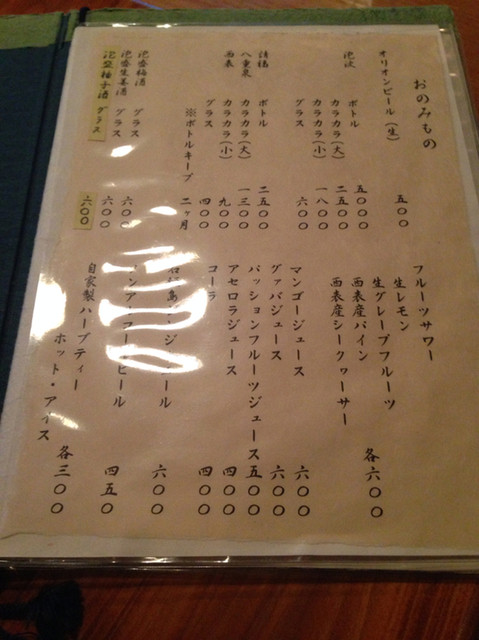 おのみもの
オリオンビール(生) 五〇〇
泡波 ボトル 五〇〇〇
カラカラ(大) 二五〇〇
カラカラ(小) 一八〇〇
グラス 六〇〇
請福 ボトル 二五〇〇
八重泉 カラカラ(大) 一三〇〇
西表 カラカラ(小) 九〇〇
グラス 四〇〇
※ボトルキープ 二ヶ月
泡盛梅酒 グラス 六〇〇
泡盛生姜酒 グラス 六〇〇
泡盛柚子酒 グラス 六〇〇
フルーツサワー
生レモン
生グレープフルーツ
西表産パイン
西表産シークヮーサー 各六〇〇
マンゴージュース 六〇〇
グァバジュース 六〇〇
パッションフルーツジュース 五〇〇
アセロラジュース 四〇〇
コーラ 四〇〇
ール 六〇〇
ノンアルコールビール 四五〇
自家製ハーブティー
ホット・アイス 各三〇〇